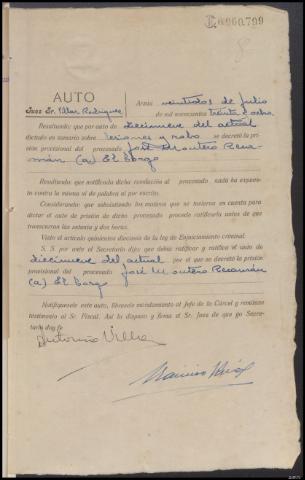 E.0960.799
8
AUTO
Juez Sr. Villar Rodriguez
Arzúa veintidos de julio
de mil novecientos treinta y ocho.
Resultando: que por auto de diecinueve del actual
dictado en sumario sobre lesiones y robo se decretó la pri-
sión provisional del procesado José Montero Recau-
mán (a) El Sorgo
Resultando: que notificada dicha resolución al procesado nada ha expues-
to contra la misma ni de palabra ni por escrito.
Considerando: que subsistiendo los motivos que se tuvieron en cuenta para
dictar el auto de prisión de dicho procesado procede ratificarla antes de que
transcurran las setenta y dos horas.
Visto el artículo quinientos dieciseis de la ley de Enjuiciamiento criminal.
S. S. por ante el Secretario dijo: que debía ratificar y ratifica el auto de
diecinueve del actual por el que se decretó la prisión
provisional del procesado José Montero Recaumán
(a) El Sorgo
Notifíquese este auto, líbresele mandamiento al Jefe de la Cárcel y remítase
testimonio al Sr. Fiscal. Así lo dispuso y firma el Sr. Juez de que yo Secre-
tario doy fe
Antonio Villar